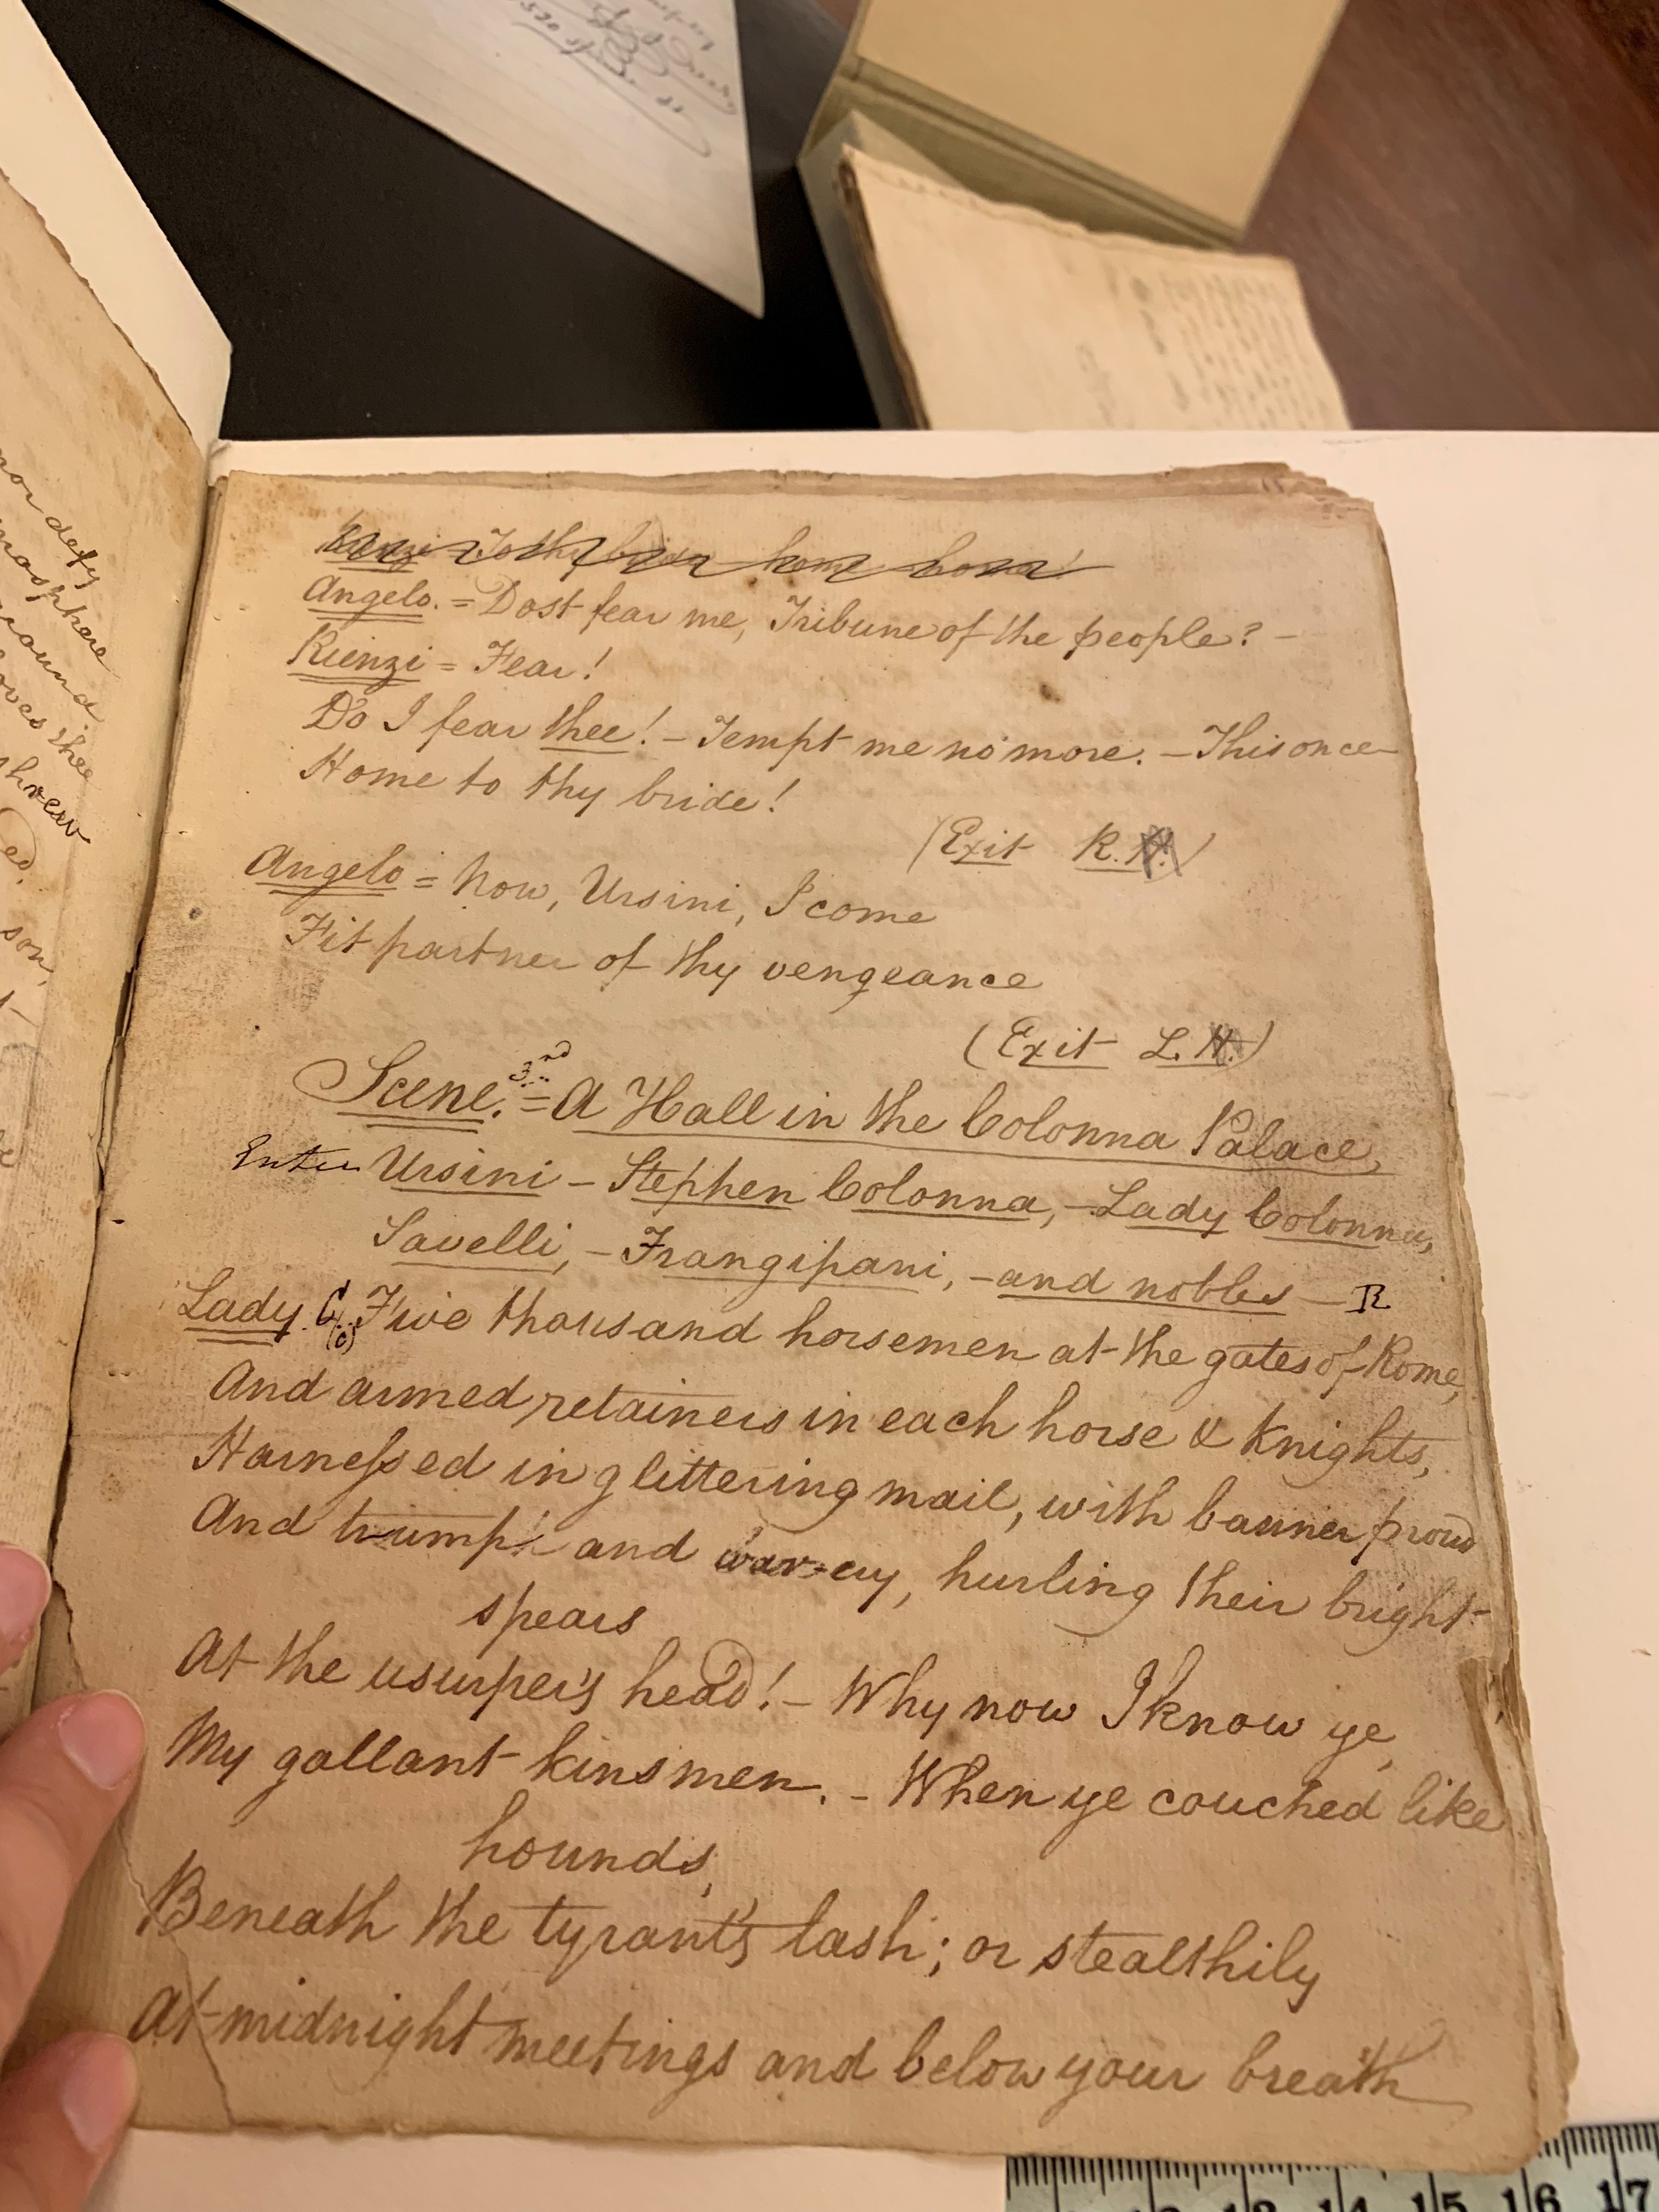 nor defy
mosphere
round
oves thee
threw
ed.
son,
Rienzi = To thy bride home home!
Angelo. = Dost fear me, Tribune of the people? -
Rienzi = Fear!
Do I fear thee! - Tempt me no more. - This once -
Home to thy bride!
(Exit R.H.)
Angelo = Now, Ursini, I come
Fit partner of thy vengeance
(Exit L.H.)
Scene. 3nd = A Hall in the Colonna Palace,
Enter Ursini - Stephen Colonna, - Lady Colonna,
Savelli, - Frangipani, - and nobles - R
Lady C. (c) Five thousand horsemen at the gates of Rome,
And armed retainers in each horse & Knights,
Harnessed in glittering mail, with banner proud
And trump and war-cry, hurling their bright
spears
At the usurper's head! - Why now I know ye,
My gallant kinsmen. - When ye couched like
hounds,
Beneath the tyrant's lash; or stealthily
At midnight meetings and below your breath
13 14 15 16 17